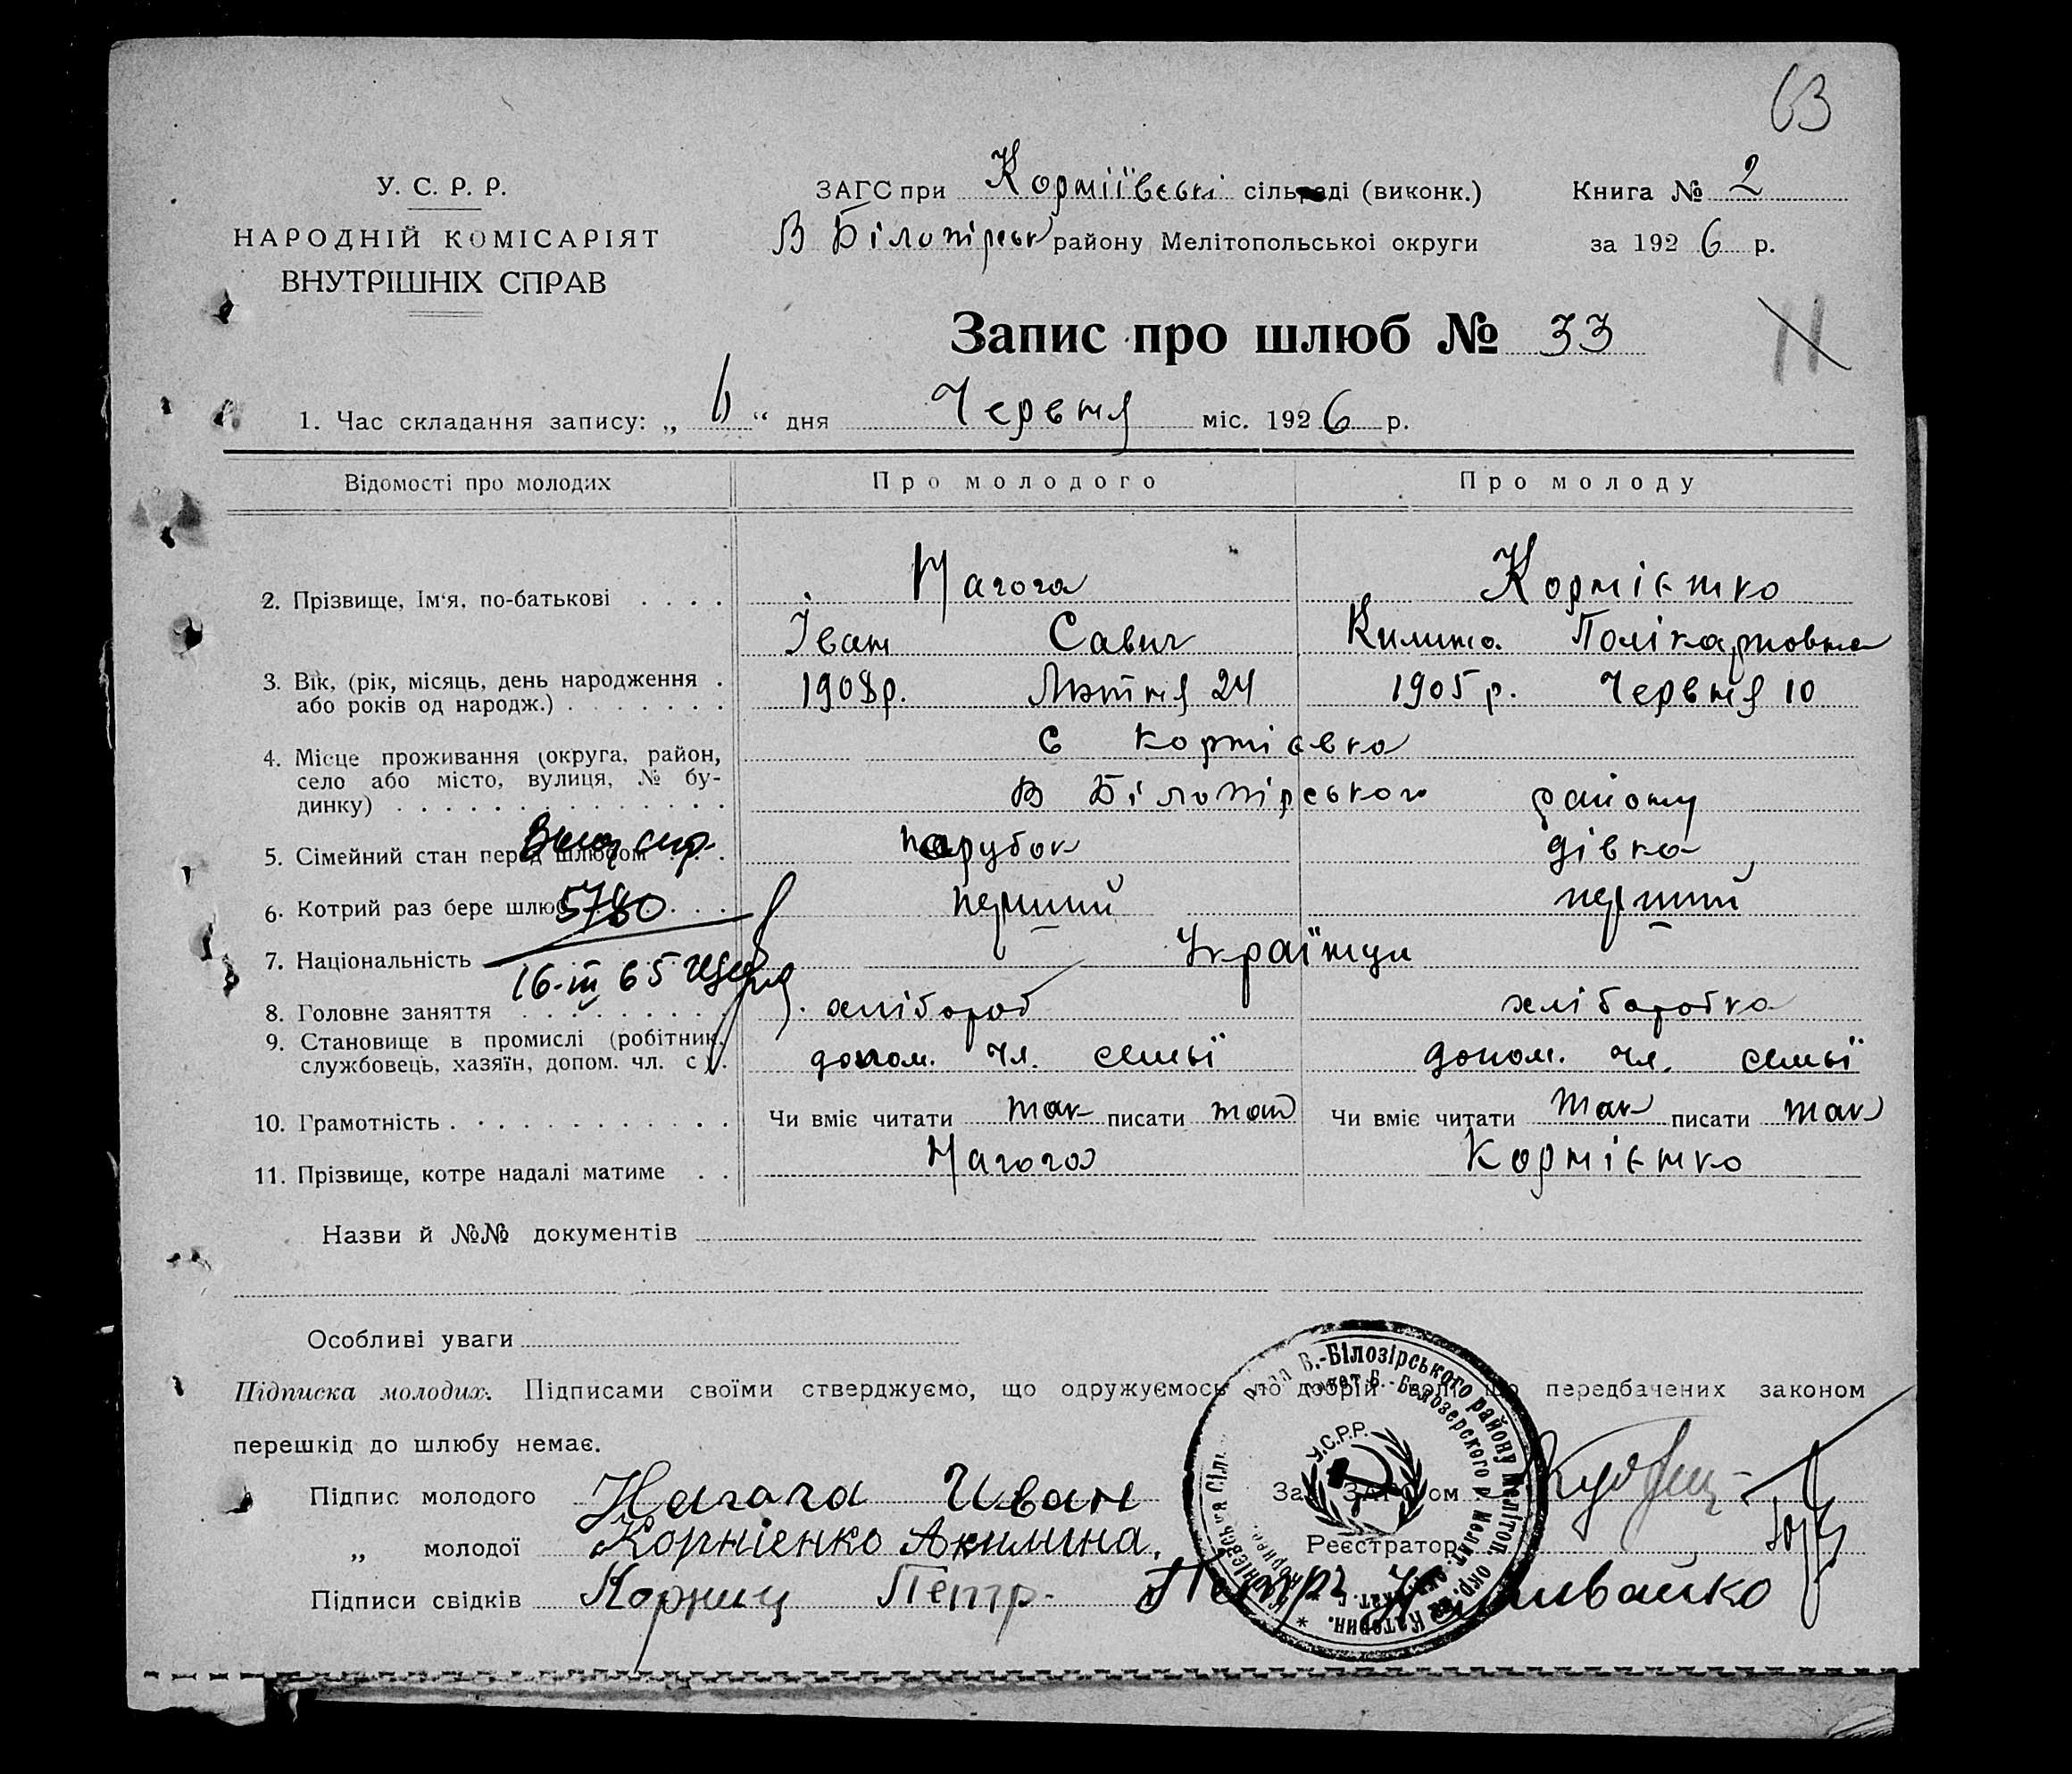 63
У. С. Р. Р.
НАРОДНІЙ КОМІСАРІЯТ
ВНУТРІШНІХ СПРАВ
ЗАГС при Корніївські сільраді (виконк.)
В Білозірськ району Мелітопольської округи
Книга № 2
за 1926 р.
Запис про шлюб № 33
11
1. Час складання запису: „ 6 “ дня Червня міс. 1926 р.
Відомості про молодих Про молодого Про молоду
2. Прізвище, Ім‘я, по-батькові . . . . Нагога Корнієнко
Іван Савич Килина Полікарповна
3. Вік, (рік, місяць, день народження . 1908р. Лютня 24 1905 р. Червня 10
або років од народж.) . . . . . . .
4. Місце проживання (округа, район, с Корнієвка
село або місто, вулиця, № бу-
динку) . . . . . . . . . . . . . В Білозірського району
5. Сімейний стан перед шлюбом . . . парубок дівка
6. Котрий раз бере шлюб . . . перший перший
5780
7. Національність Українци
16-III 65
8. Головне заняття . . . . . . . . . хлібороб хліборобка
9. Становище в промислі (робітник, допом. чл. семьї допом. чл. семьї
службовець, хазяїн, допом. чл. с ).
10. Грамотність . . . . . . . . . . . . Чи вміє читати так писати так Чи вміє читати так писати так
11. Прізвище, котре надалі матиме . . Нагога Корнієнко
Назви й №№ документів
Особливі уваги
Підписка молодих. Підписами своїми стверджуємо, що одружуємось по добрій волі що передбачених законом
перешкід до шлюбу немає.
Підпис молодого Нагога Иван
„ молодої Корнієнко Акилина.
Реєстратор
Підписи свідків Корниц Петр. Петр Наливайко
В.-Білозірського району Мелітоп. окр. Катерин.
В.-Белозерского р. Мелит.
У.С.Р.Р.